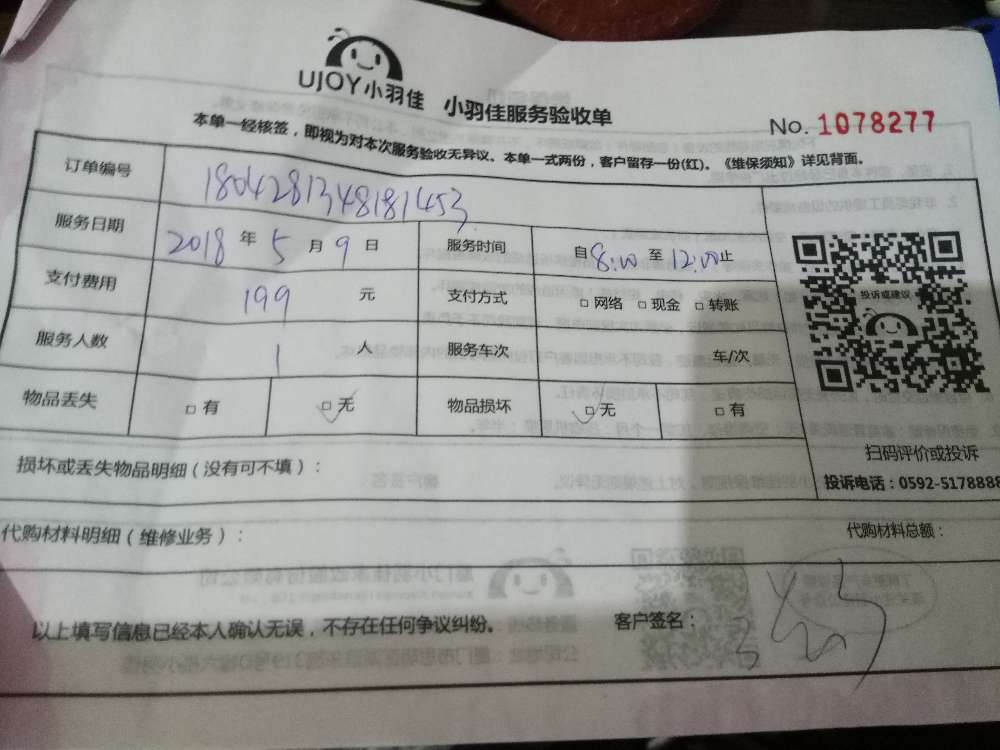 UJOY小羽佳 小羽佳服务验收单
No. 1078277
本单一经核签，即视为对本次服务验收无异议。本单一式两份，客户留存一份(红)。《维保须知》详见背面。
订单编号 1804281348181453
服务日期 2018 年 5 月 9 日 服务时间 自 8:00 至 12:00 止
支付费用 199 元 支付方式 □ 网络 □ 现金 □ 转账
服务人数 1 人 服务车次 车/次
物品丢失 □ 有 □ 无 物品损坏 □ 无 □ 有
投诉或建议
扫码评价或投诉
投诉电话：0592-5178888
损坏或丢失物品明细（没有可不填）：
代购材料明细（维修业务）： 代购材料总额：
以上填写信息已经本人确认无误，不存在任何争议纠纷。 客户签名：